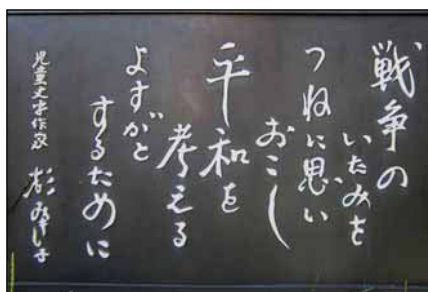 戦争の
いたみを
つねに思い
おこし
平和を
考える
よすがと
するために
児童文学作家
杉みき子